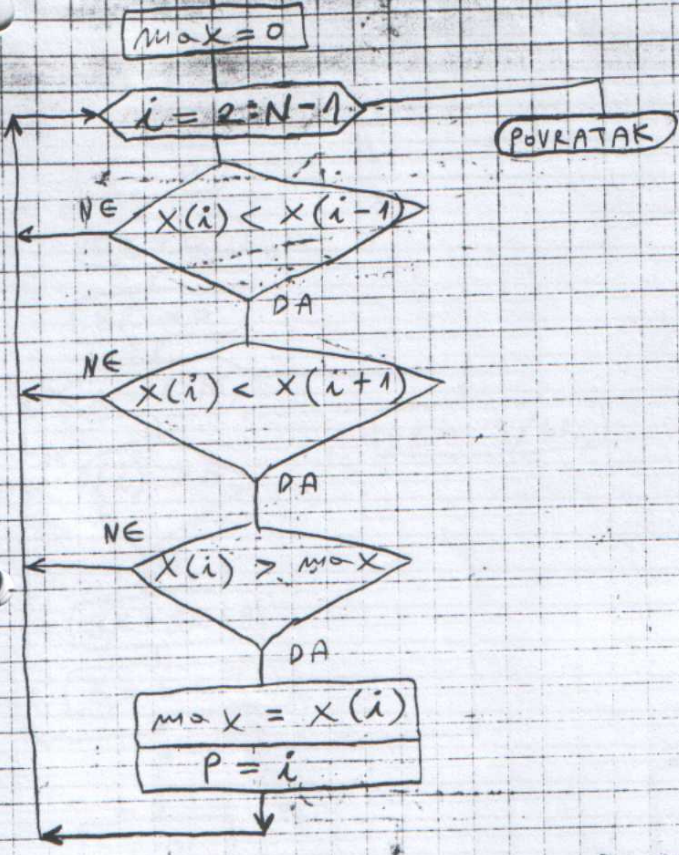 max = 0
i = 2:N-1
POVRATAK
NE
X(i) < X(i-1)
DA
NE
X(i) < X(i+1)
DA
NE
X(i) > max
DA
max = X(i)
P = i